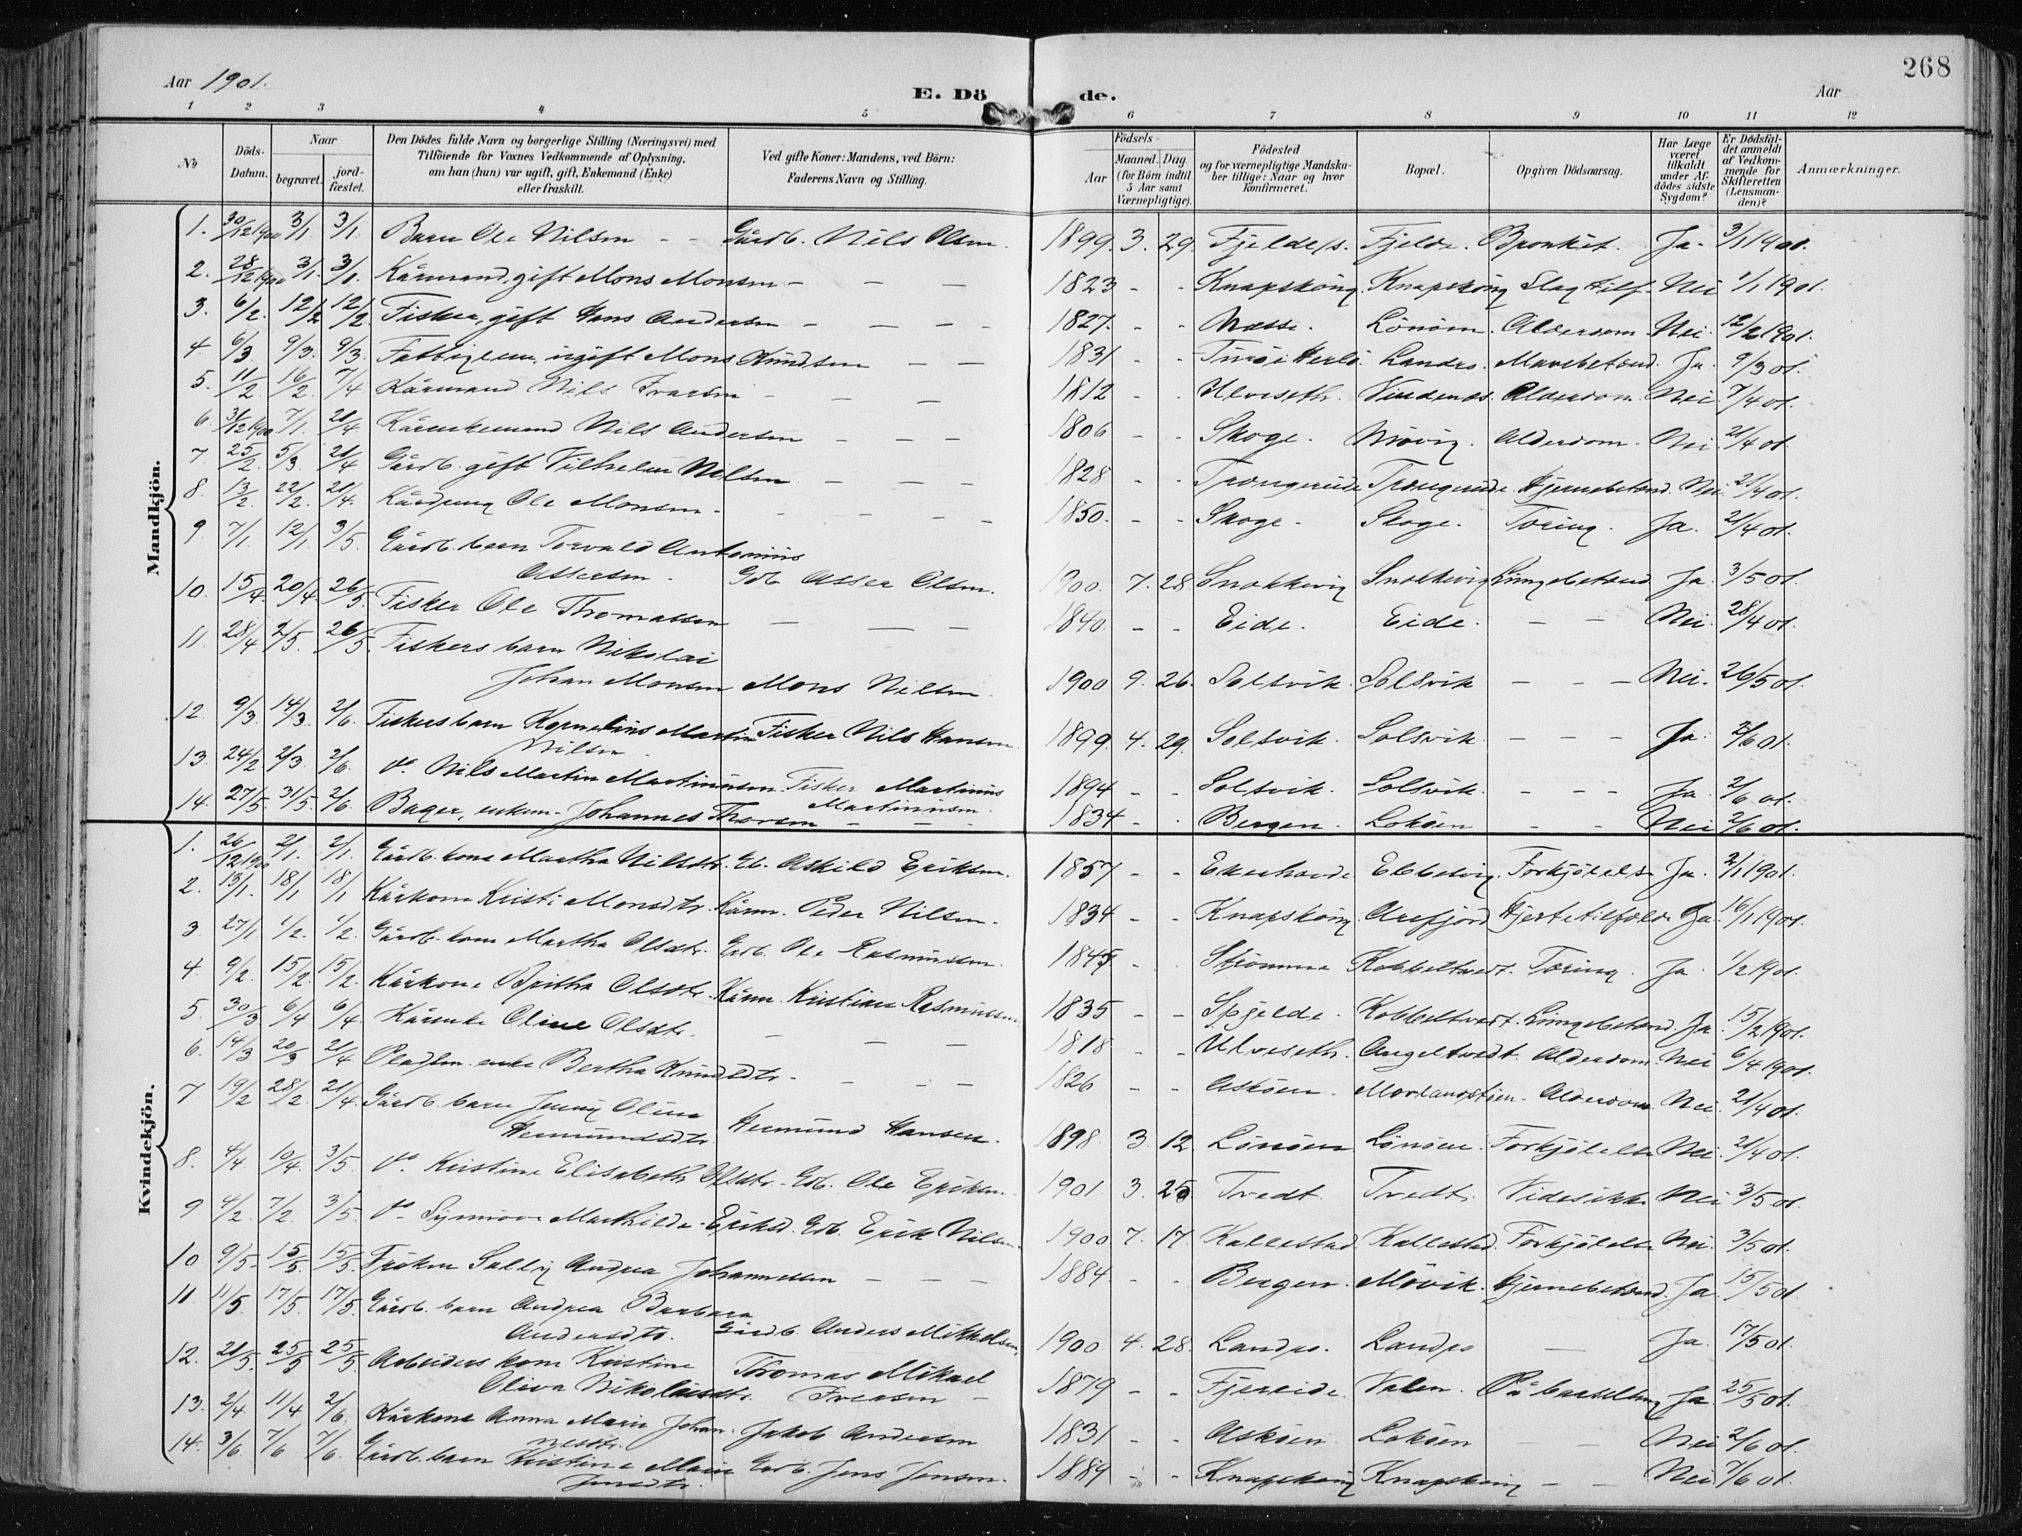 268
Aar 1901.
E. Dö de.
Aar
1 2 3 4 5 6 7 8 9 10 11 12
No
Döds-Datum.
Naar
begravet.
jord-fæstet.
Den Dödes fulde Navn og borgerlige Stilling (Næringsvei) med
Tilföiende for Voxnes Vedkommende af Oplysning,
om han (hun) var ugift, gift, Enkemand (Enke)
eller fraskilt.
Ved gifte Koner: Mandens, ved Börn:
Faderens Navn og Stilling.
Födsels-
Aar
Maaned. Dag.
(for Börn indtil
5 Aar samt
Værnepligtige).
Födested
og for værnepligtige Mandska-
ber tillige: Naar og hvor
konfirmeret.
Bopæl.
Opgiven Dödsaarsag.
Har Læge
været
tilkaldt
under Af-
dödes sidste
Sygdom?
Er Dödsfal-
det anmeldt
af Vedkom-
mende for
Skifteretten
(Lensman-
den)?
Anmærkninger.
Mandkjön.
1. 30/12 1900 3/1 3/1. Barn Ole Nilsen - - Gårdb. Nils Olsen. 1899. 3. 29. Fjelde Fjelde. Bronkit. Ja. 3/1 1901.
2. 28/12 1900 3/1. 3/1. Kårmand, gift Mons Monsen - - - 1823 - - Knapskog. Knapskog Slag Nei 1/1 1901.
3. 6/2. 12/2 12/2. Fisker, gift Hans Andersen - - - 1827. - - Næsse. Lönöen. Alderdom Nei. 12/2 1901.
4. 6/3 9/3. 9/3. Fattiglem, ugift Mons Knudsen - - 1831 - - Turöi Herlö. Landro. Mavebetænd. Ja. 9/3 01.
5. 11/2. 16/2. 7/4. Kårmand Nils Iversen - - - 1812 - - Ulveseth. Vindenæs. Alderdom. Nei 7/4 01.
6 31/12 1900 7/1. 21/4. Kårenkemand Nils Andersen - - - 1806 - - Skoge. Alderdom. Nei. 21/4 01.
7 25/2. 5/3 21/4. Gårdb. gift Vilhelm Nilsen - - - 1828 - - Hjernebetænd. Nei 21/4 01.
8. 13/2 22/2. 21/4. Ole Monsen. - - - 1850. - - Skoge. Skoge. Tæring. Ja. 21/4 01.
9 7/1. 12/1. 3/5. Gårdb. barn Torvald Antonius
Assersen. Gdb. Asser Olsen. 1900. 7. 28. Snekkevig Snekkevig Lungebetænd Ja. 3/5 01.
10. 15/4. 20/4. 26/5. Fisker Ole Thomassen - - - 1840. - - Eide. Eide. - - Nei. 28/4 01.
11. 28/4 2/5. 26/5. Fiskers barn Nikolai
Johan Monsen Mons Nilsen. 1900 9. 26. Solsvik. Solsvik - - - Nei. 26/5 01.
12. 9/3 14/3. 2/6. Fiskers barn Kornelius Martin Fisker Nils Hansen
Nilsen 1899. 4. 29. Solsvik. Solsvik. - - - Ja. 2/6 01.
13. 24/2 2/3. 2/6. do. Nils Martin Martinusen. Fisker Martinus
Martinusen. 1894 - - Solsvik. Solsvik. - - - Ja. 2/6 01.
14. 27/5. 31/5. 2/6. Bager, enkem. Johannes Thorsen - - - 1834 - - Bergen. Loköen - - Nei 2/6 01.
Kvindekjön.
1. 26/12 1900 2/1. 2/1. Gårdb. kone Martha Nilsdtr. Gb. Askild Eriksen. 1857 - - Ekerhovde Ebbesvig. Forkjölelse Ja. 2/1 1901.
2. 13/1. 18/1 18/1 Kårkone Kristi Monsdtr. Kårm. Peder Nilsen. 1834 - - Knapskog. Arefjord Hjertetilfælde Ja. 16/1 1901.
3. 27/1 1/2. 1/2. Gårdb. kone Martha Olsdtr. Gdb. Ole Rasmussen. 1845 - - Strömme Kobbeltvedt. Tæring. Ja. 1/2 1901.
4. 9/2. 15/2. 15/2. Kårkone Britha Olsdtr. Kårm. Kristian Rasmussen. 1835 - - Spjelde. Kobbeltvedt. Lungebetænd. Ja. 15/2 1901.
5. 30/3 6/4 6/4. Kårenke Oline Olsdtr. - - - 1818 - - Ulveseth. Angeltvedt. Alderdom. Nei 6/4 1901.
6. 14/3 20/3 21/4. enke Bertha Knudsdtr. - - - 1826 - - Asköen. Alderdom Nei. 21/4 01.
7 19/2 28/2. 21/4. Gårdb. barn Jenny Oline
Hermundsdtr. Hermund Hansen. 1898. 3. 12. Lönöen Lönöen. Forkjölelse Nei. 21/4 01.
8. 4/4. 10/4. 3/5. do. Kristine Elisabeth Olsdtr. Gdb. Ole Eriksen. 1901. 3. 25 Tvedt. Tvedt. Vides ikke Nei 3/5 01.
9 4/2. 7/2. 3/5. do. Synnöve Mathilde Eriksd. Gdb. Erik Nilsen. 1900 7. 17. Kallestad Kallestad. Forkjölelse Nei. 3/5 01.
10. 9/5. 15/5. 15/5. Fröken Sally Andrea Johannessen - - - 1884. - - Bergen. Mövik. Hjernebetænd. Ja. 15/5 01.
11. 11/5 17/5. 17/5. Gårdb. barn Andrea Barbara
Andersdtr. Gårdb. Anders Mikkelsen. 1900 4. 28. Landro. Landro - Ja. 17/5 01.
12. 21/5. 25/5 25/5. Arbeiders kone Kristine
Oliva Nikolaisdtr. Thomas Mikael
Iversen - 1879 - - Fjereide. Valen. På barselseng Ja. 25/5 01.
13. 2/4 11/4 2/6. Kårkone Anna Marie Johan-
nesdtr. Jakob Andersen 1831 - - Asköen. Loköen - - Nei 2/6 01.
14. 3/6. 7/6. 7/6. Gårdb. barn Kristine Marie Gårdb. Jens Jensen.
Jensdtr. 1889 - - Knapskog Knapskog - - Nei 7/6 01.